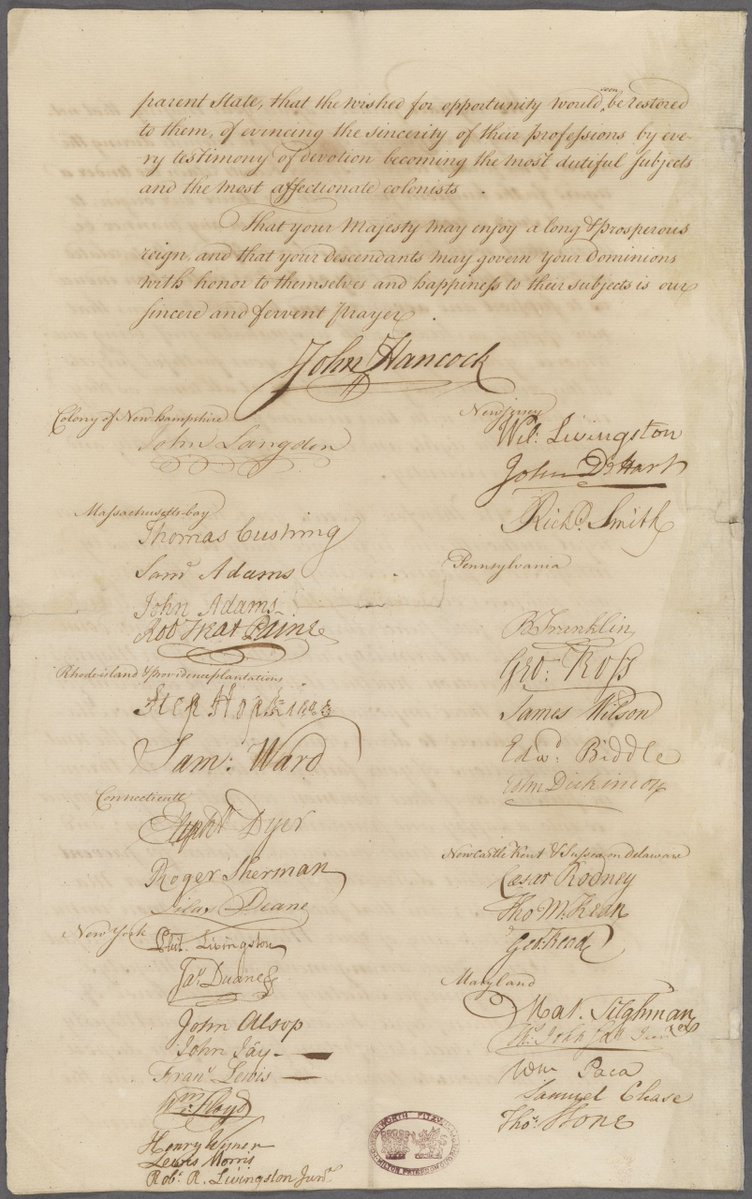 parent State, that the wished for opportunity would soon be restored
to them, of evincing the sincerity of their professions by eve-
ry testimony of devotion becoming the most dutiful subjects
and the most affectionate colonists.
That your Majesty may enjoy a long & prosperous
reign, and that your descendants may govern your Dominions
with honor to themselves and happiness to their subjects is our
sincere and fervent prayer
John Hancock
Colony of New Hampshire
John Langdon
Massachusetts-bay
Thomas Cushing
Sam¹ Adams
John Adams
Rob Treat Paine
Rhode island & providence plantations
Step Hopkins
Sam: Ward
Connecticutt
Elipht Dyer
Roger Sherman
Silas Deane
New York
Phil. Livingston
Jas Duane
John Alsop
John Jay
Frans Lewis
Wm Floyd
Henry Wisner
Lewis Morris
Robt R. Livingston Junr
New Jersey
Wil: Livingston
John De Hart
Richd Smith
Pennsylvania
B Franklin
Geo: Ross
James Wilson
Edwd Biddle
John Dickinson
Newcastle Kent & Sussex on Delaware
Cæsar Rodney
Tho M:Kean
Geo: Read
Maryland
Mat. Tilghman
Wm Paca
Samuel Chase
Thos Stone